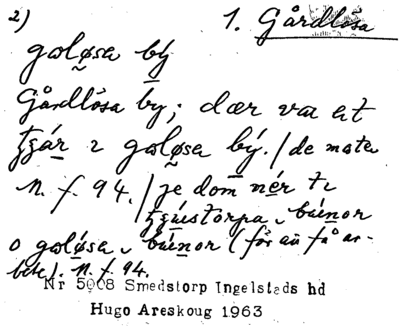 2) 1. Gårdlösa
galøsa bý
Gårdlösa by; dær va et
galøsa bý. / de mate
N. f. 94. / je dom nér te
búenor
o galøsa búenor (før au få ar-
bete). N. f. 94.
Nr 5008 Smedstorp Ingelstads hd
Hugo Areskoug 1963